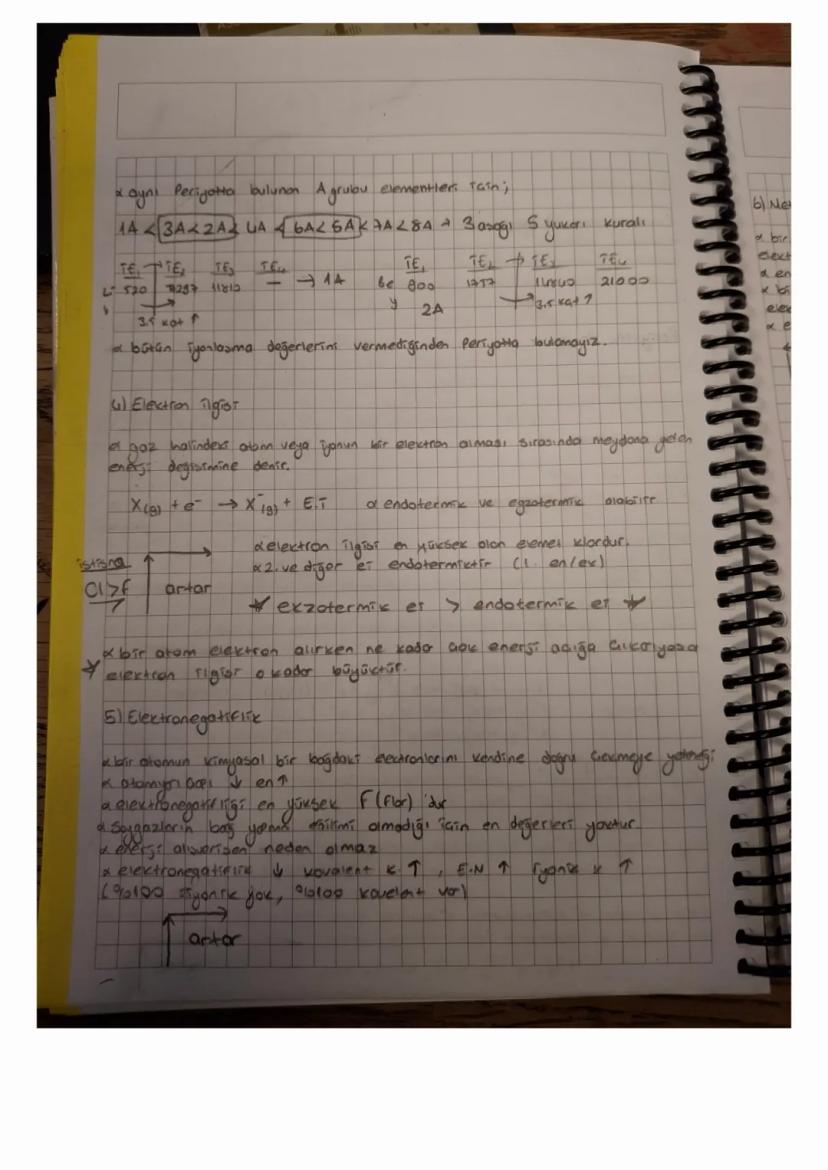 α aynı Periyotta bulunan A grubu elementleri için;
1A < 3A < 2A < 4A < 6A < 5A < 7A < 8A → 3 aşağı 5 yukarı kuralı
İE₁ → İE₂ İE₃ İE₄ → 1A
Li 520 7297 11810 —
3.5 kat ↑
Be İE₁ İE₂ → İE₃ İE₄
800 1757 14840 21000
3.5 kat ↑
2A
α bütün iyonlaşma değerlerini vermediğinden Periyotta bulamayız.
4) Elektron ilgisi
α gaz halindeki atom veya iyonun bir elektron alması sırasında meydana gelen
enerji değişimine denir.
X(g) + e⁻ → X⁻(g) + E.İ α endotermik ve egzotermik olabilir
α elektron ilgisi en yüksek olan element klordur.
istisna
Cl>F
artar
α 2. ve diğer ei endotermiktir (1. en/ex)
★ exzotermik ei > endotermik ei ★
α bir atom elektron alırken ne kadar çok enerji açığa çıkarıyorsa
elektron ilgisi o kadar büyüktür.
5) Elektronegatiflik
α bir atomun kimyasal bir bağdaki electronlarını kendine doğru çekmeye yatkınlığı
α atomun çapı ↓ en ↑
α elektronegatifliği en yüksek F (flor) 'dur
α Soygazların bağ yapma eğilimi olmadığı için en değerleri yoktur
α enerji alışverişen neden olmaz
α elektronegatiflik ↓ kovalent k ↑, E.N ↑ iyonik k ↑
(%100 iyonik yok, %100 kovelent var)
artar
b) Ne
α bir
elect
α en
α bi
elek
α e